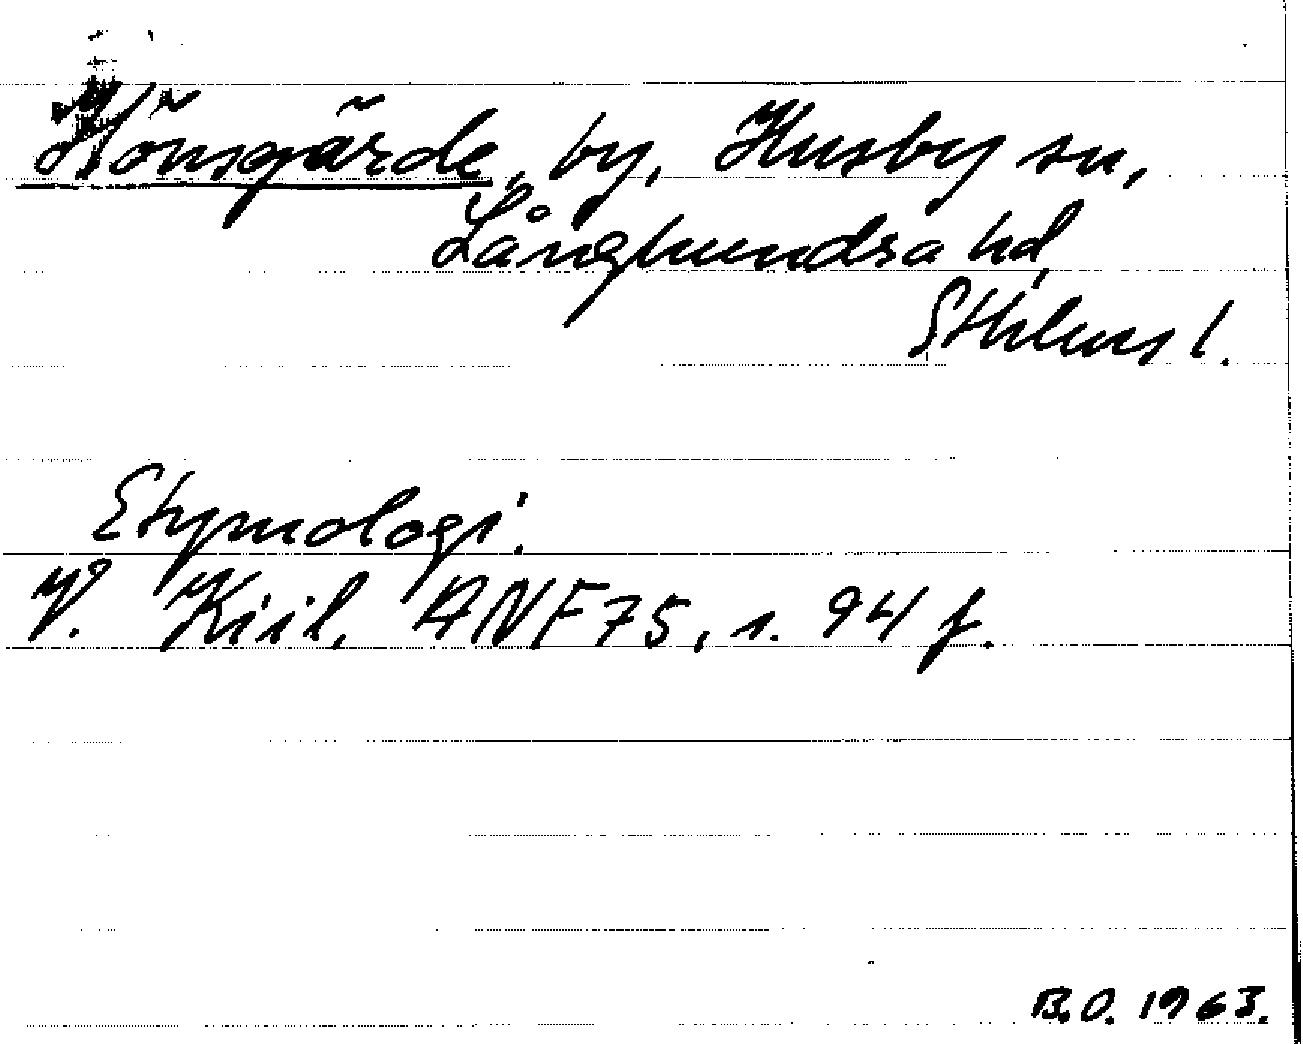 Hönsgärde, by, Husby sn,
Långhundra hd,
Sthlms l.
Etymologi.
V. Kiil, ANF 75, s. 94 f.
B.O. 1963.